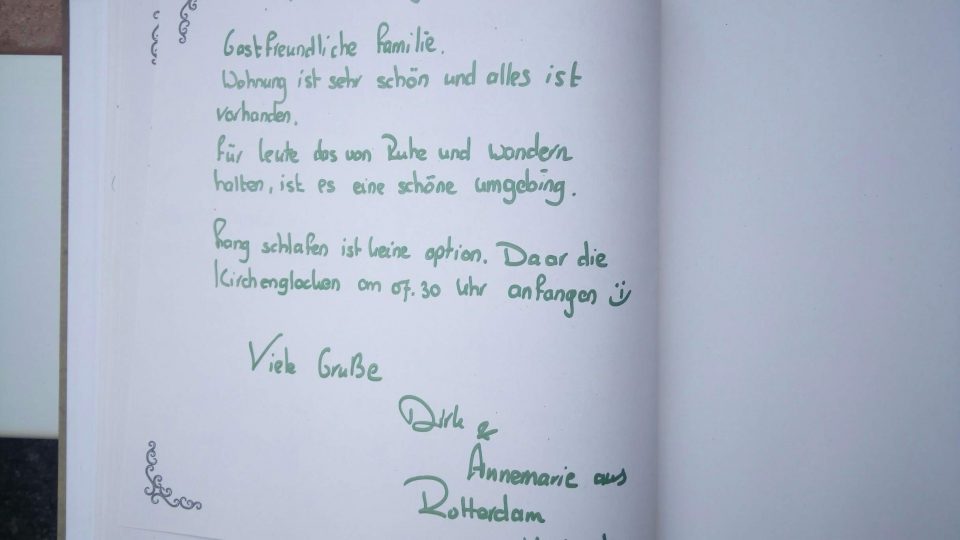 Gastfreundliche Familie.
Wohnung ist sehr schön und alles ist
vorhanden.
für leute das von Ruhe und wandern
halten, ist es eine schöne umgebing.
lang schlafen ist keine option. Daar die
Kirchenglocken om 07.30 Uhr anfangen
Viele Gruße
Dirk &
Annemarie aus
Rotterdam